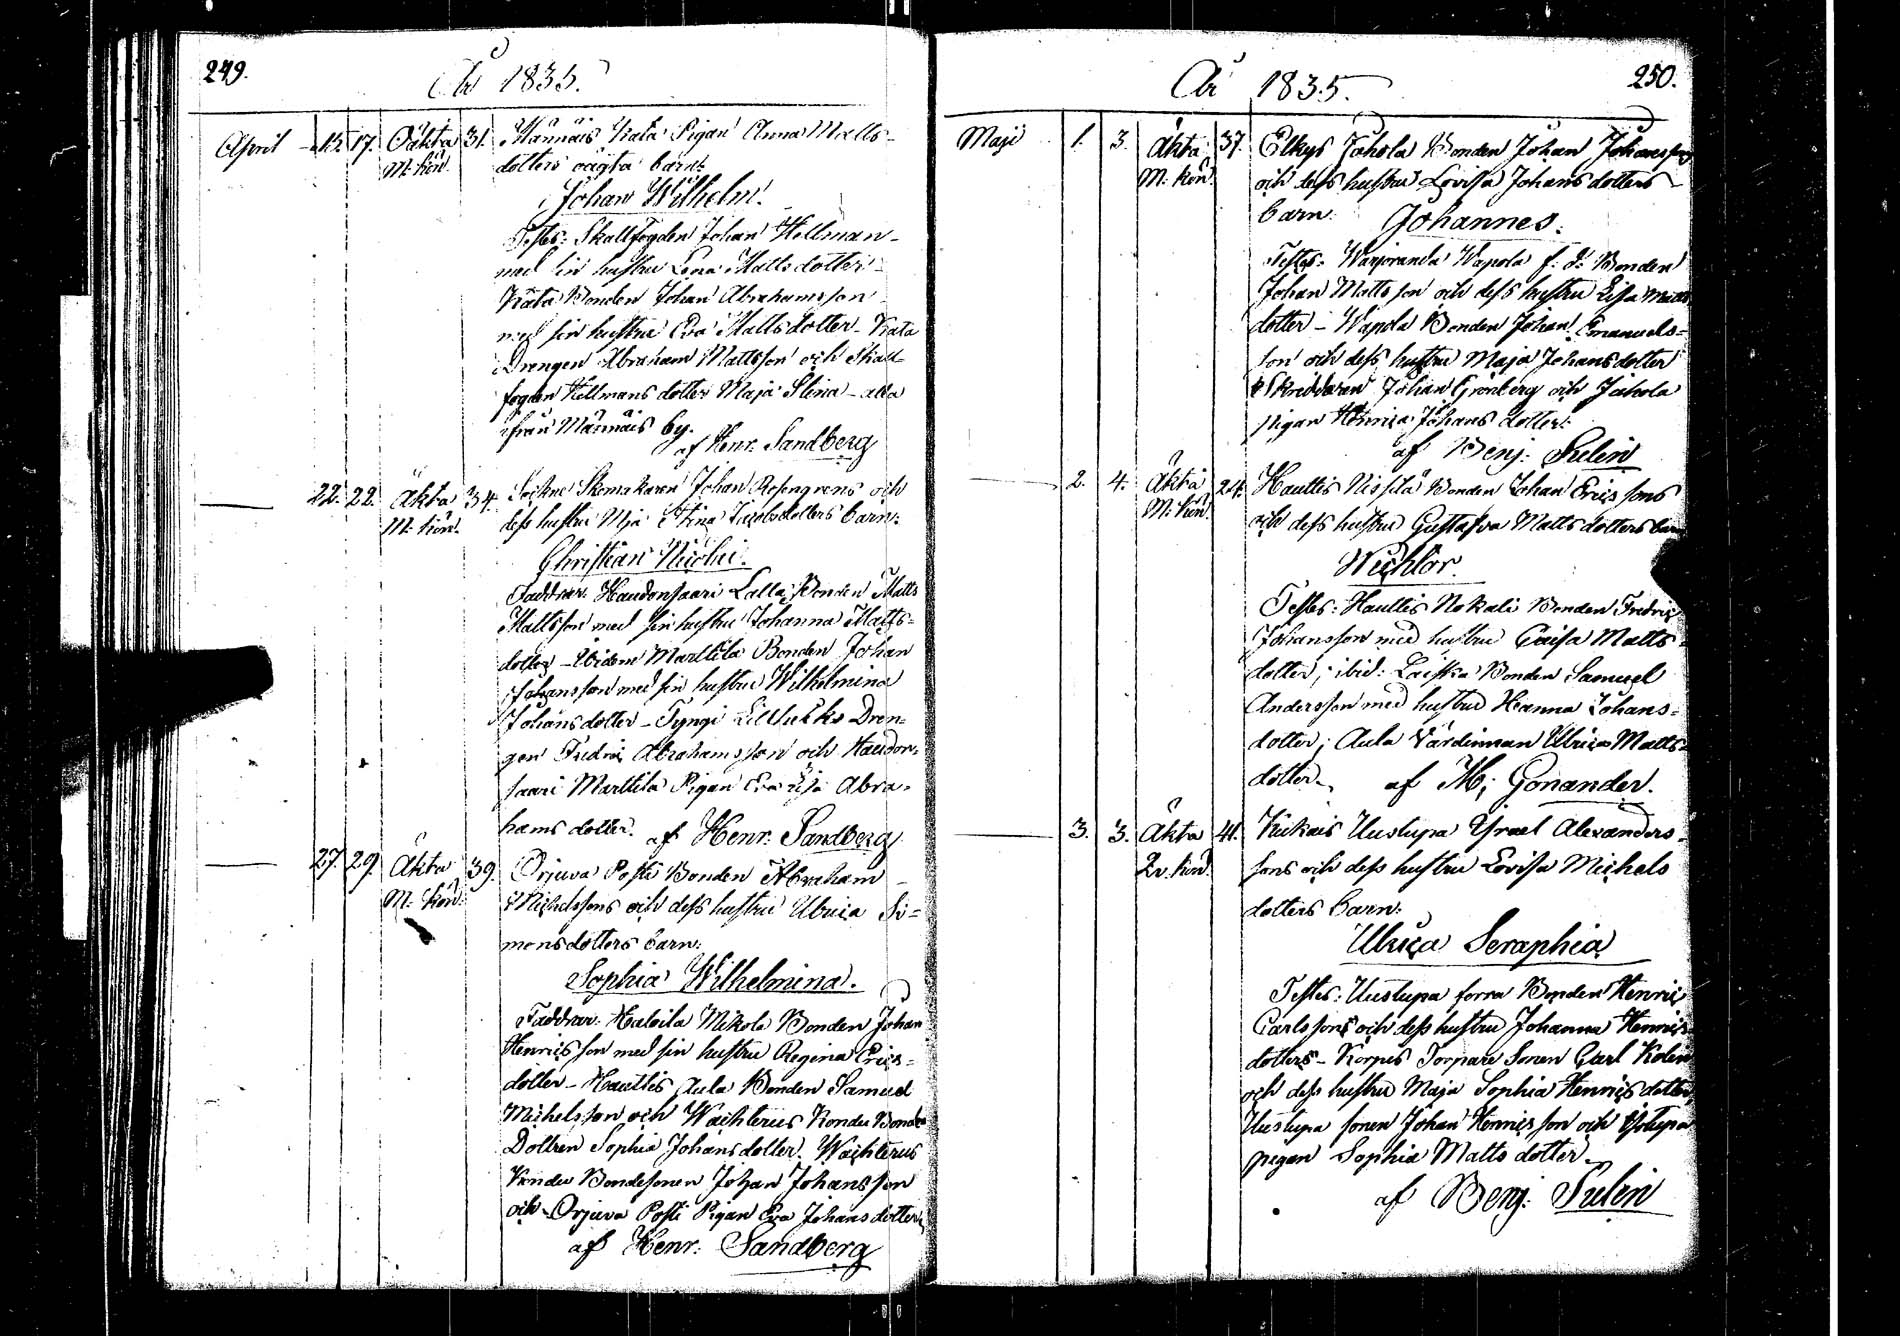 249.
År 1835.
April 12. 17. Oäkta 31. Männäis Krata Pigan Anna Matts-
M: kön. dotters oägta barn:
Johan Wilhelm.
Testes: Skallfogden Johan Hellman
med sin hustru Lena Mattsdotter
Krata Bonden Johan Abrahamsson
med sin hustru Eva Mattsdotter - Krata
Drengen Abraham Mattsson och Skall-
fogden Hellmans dotter Maja Stina - alla
ifrån Männäis by.
af Henr: Sandberg
22. 22. Äkta 34. Sockne Skomakaren Johan Rosengrens och
M: kön. dess hustru Mja Stina Jacobsdotters barn:
Christian Nicolai.
Faddrar: Haudonsaari Lalla Bonden Matts
Mattsson med sin hustru Johanna Matts-
dotter - Ibidem Marttila Bonden Johan
Johansson med sin hustru Wilhelmina
Johansdotter - Tyngi Dren-
gen Fredric Abrahamsson och Haudon-
saari Marttila Pigan Eva Lisa Abra-
hams dotter. af Henr: Sandberg
27. 29. Äkta 39. Orjuva Posti Bonden Abraham
M: kön. Michelssons och dess hustru Ulrica Si-
monsdotters barn:
Sophia Wilhelmina.
Faddrar: Haloila Mikola Bonden Johan
Henricsson med sin hustru Regina Erics-
dotter - Hauttis Aula Bonden Samuel
Michelsson och Wachterus Kondu Bonde
Dottren Sophia Johansdotter. Wachterus
Kondu Bondesonen Johan Johansson
och Orjuva Posti Pigan Eva Johansdotter
af Henr: Sandberg
250.
År 1835.
Maji 1. 3. Äkta 37. Elkys Jahola Bonden Johan Johanssons
M: kön. och dess hustru Lovisa Johansdotters
barn: Johannes.
Testes: Warjoranda Wapola f: d: Bonden
Johan Mattsson och dess hustru Lisa Matts
dotter - Wapola Bonden Johan Emanuels-
son och dess hustru Maja Johansdotter
Skreddaren Johan Grönberg och Jahola
pigan Henrica Johans dotter.
af Benj: Sulin
2. 4. Äkta 24. Hauttis Nissilä Bonden Johan Ericssons
M: kön. och dess hustru Gustafva Mattsdotters barn
Wichtor.
Testes: Hauttis Nokali Bonden Fredric
Johansson med hustru Caisa Matts-
dotter; ibid: Laiska Bonden Samuel
Andersson med hustru Hanna Johans-
dotter; Aula Värdinnan Ulrica Matts-
dotter. af M; Gonander.
3. 3. Äkta 41. Kukais Uustupa Ysrael Alexanders-
Qv. kön. sons och dess hustru Lovisa Michels
dotters barn:
Ulrica Seraphia
Testes: Uustupa forra Bonden Henric
Carlssons och dess hustru Johanna Henrics
dotters - Korpus Torpare Sonen Carl Kolin
och dess hustru Maja Sophia Henrics dotter,
Uustupa sonen Johan Henricsson och
pigan Sophia Matts dotter.
af Benj: Sulin